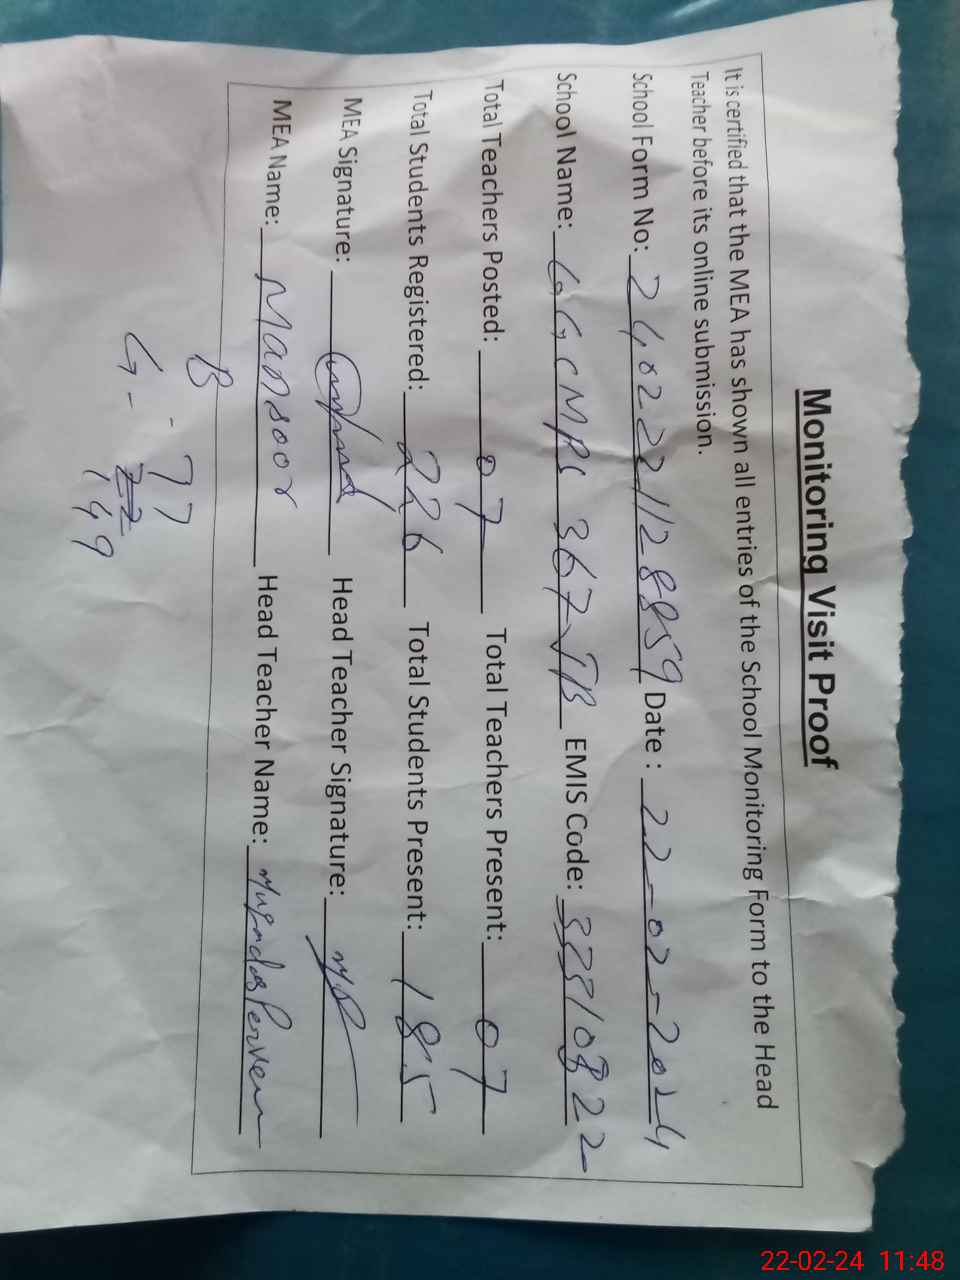 Monitoring Visit Proof
It is certified that the MEA has shown all entries of the School Monitoring Form to the Head
Teacher before its online submission.
School Form No: 2402221128859 Date : 22-02-2024
School Name: GGCMPS 367-JB EMIS Code: 33310822
Total Teachers Posted: 07 Total Teachers Present: 07
Total Students Registered: 226 Total Students Present: 185
MEA Signature: Head Teacher Signature: MP
MEA Name: Mansoor Head Teacher Name: Muqadas Perveen
B - 77
G - 149
22-02-24 11:48